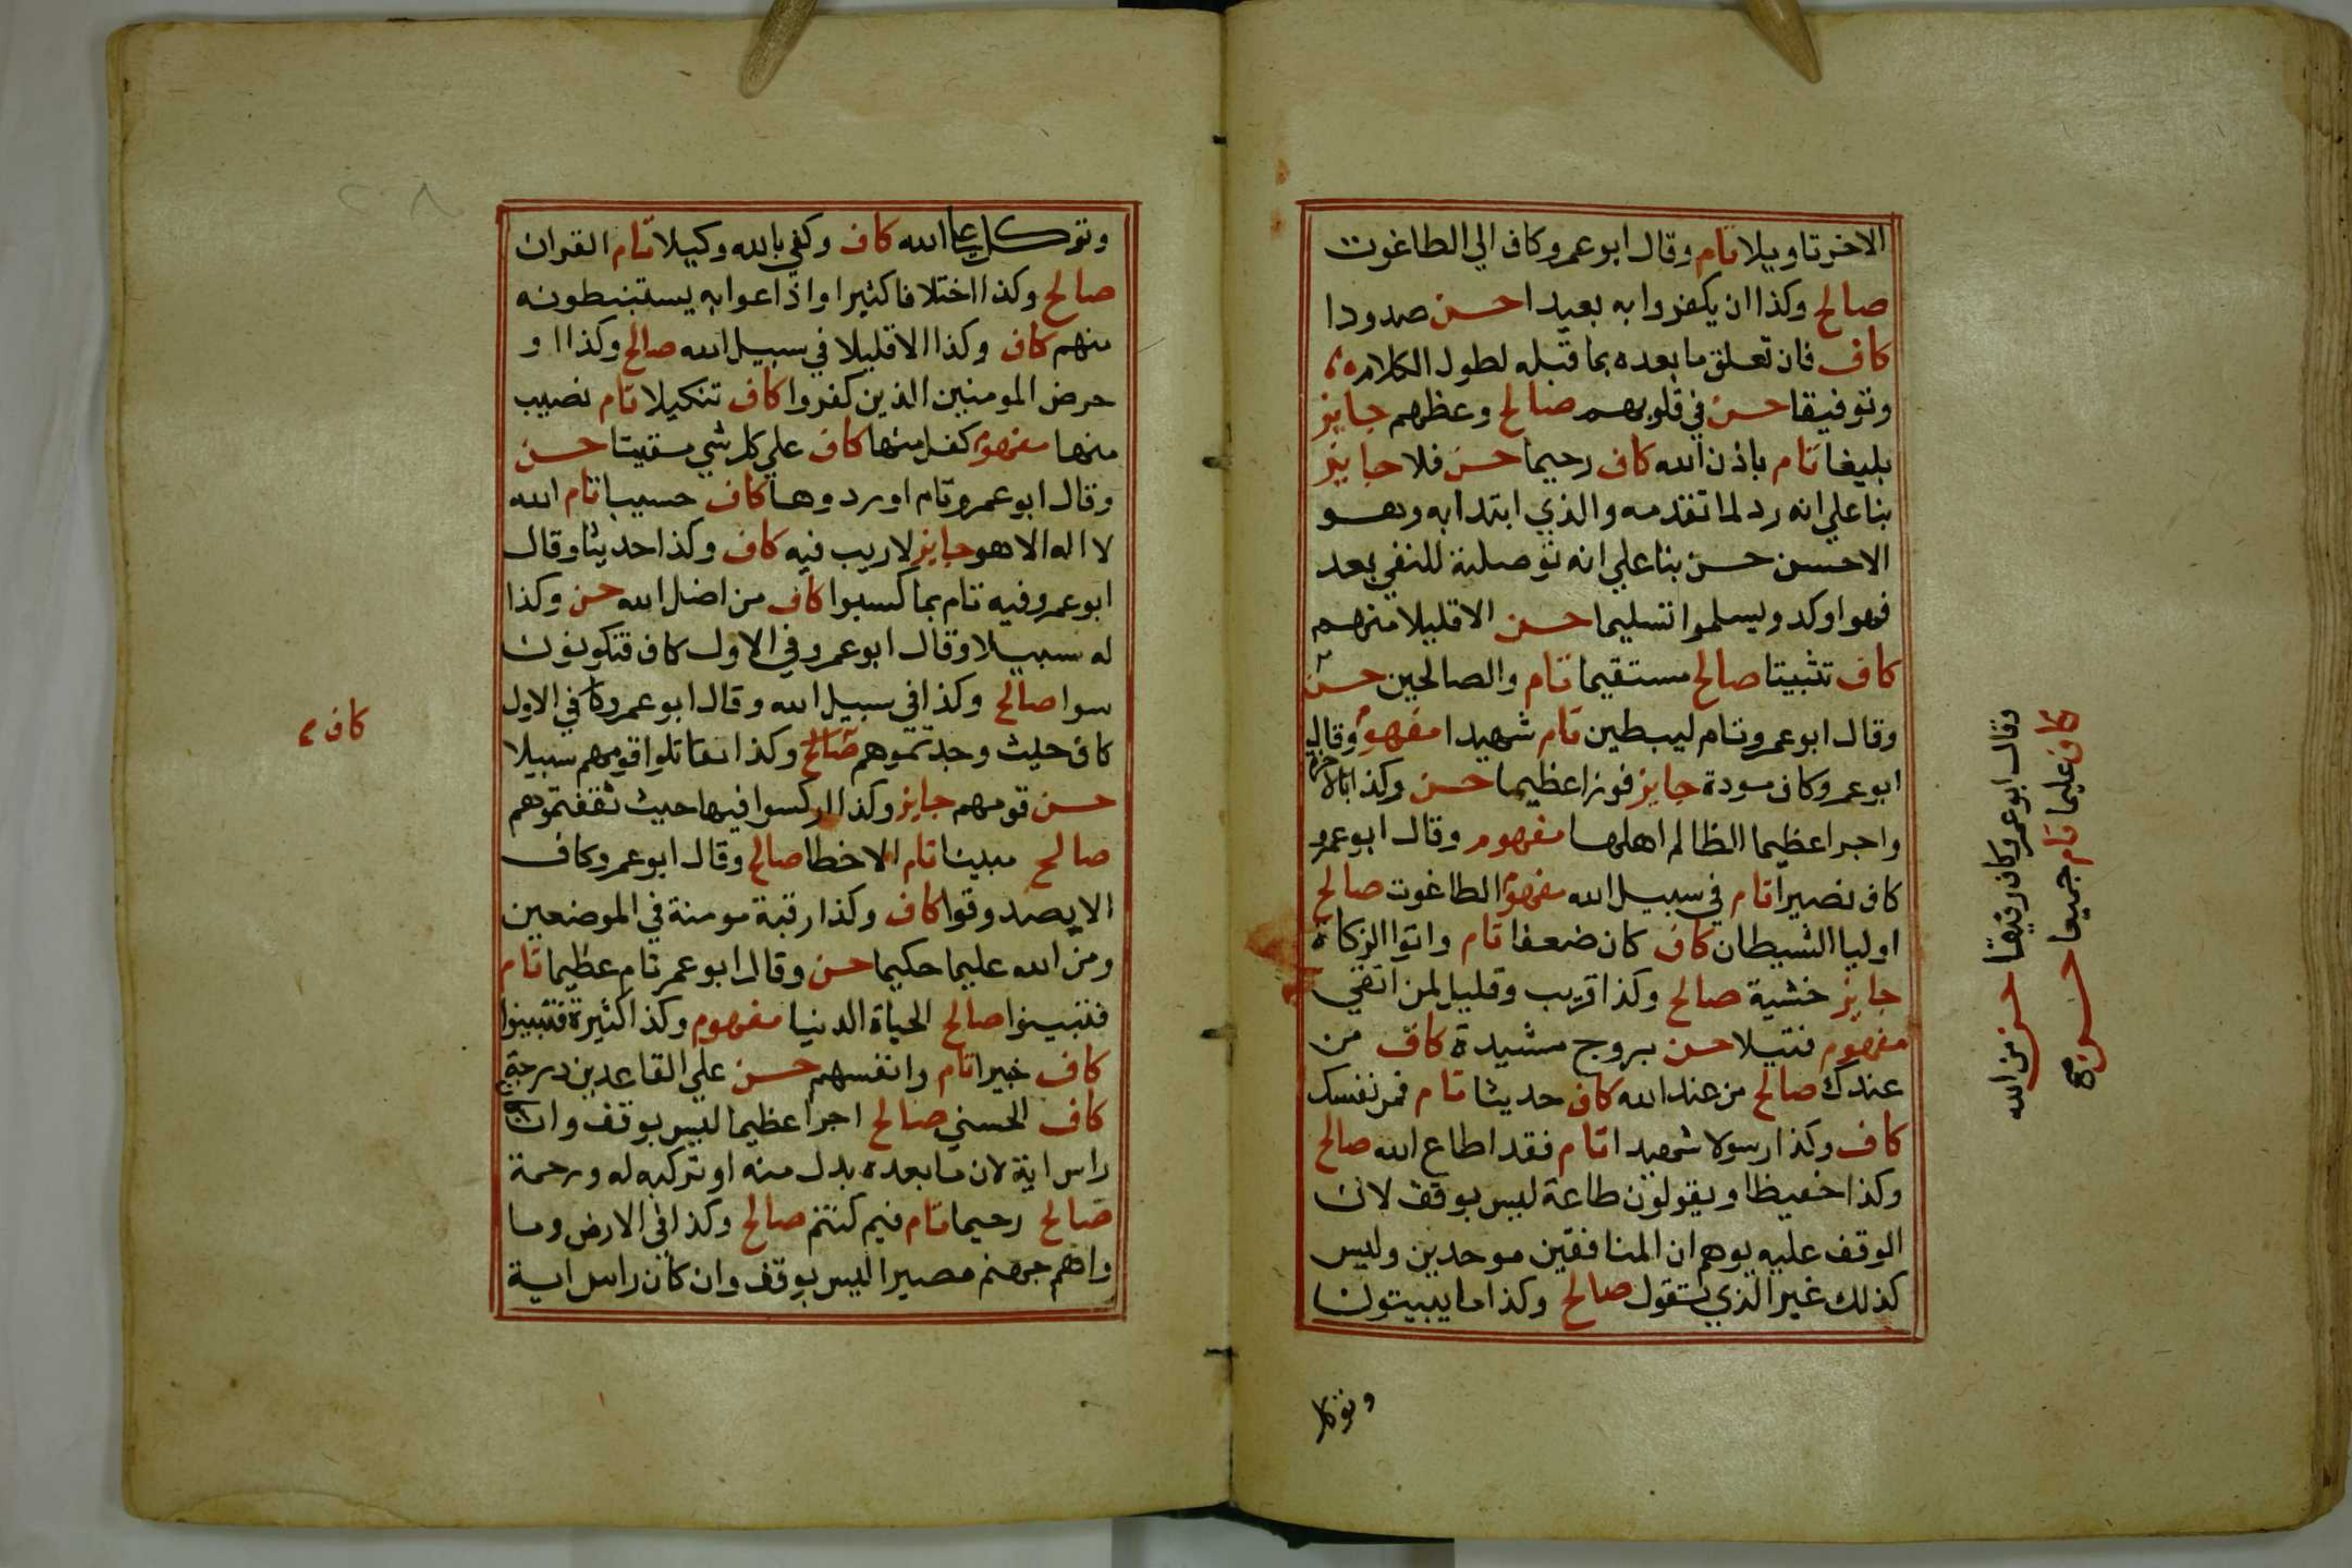 الاخر تاويلا تام وقال ابو عمرو كاف الي الطاغوت
صالح وكذا ان يكفروا به بعيدا حسن صدودا
كاف فان تعلق ما بعده بما قبله لطول الكلام
وتوفيقا حسن في قلوبهم صالح وعظهم جايز
بليغا تام باذن الله كاف رحيما حسن فلا جايز
بنا علي انه رد لما تقدمه والذي ابتدا به وهو
الاحسن حسن بنا علي انه توصلة للنفي بعد
فهو اوكد ويسلموا تسليما حسن الا قليلا منهم
كاف تثبيتا صالح مستقيما تام والصالحين حسن
وقال ابو عمرو تام ليبطين تام شهيدا مفهوم وقال
ابو عمرو كاف مودة جايز فوزا عظيما حسن وكذا بالاخرة
واجرا عظيما الظالم اهلها مفهوم وقال ابو عمرو
كاف نصيرا تام في سبيل الله مفهوم الطاغوت صالح
اوليا الشيطان كاف كان ضعفا تام واتوا الزكاة
جايز خشية صالح وكذا قريب وقليل لمن اتقي
مفهوم فتيلا حسن بروج مشيدة كاف من
عندك صالح من عند الله كاف حديثا تام فمن نفسك
كاف وكذا رسولا شهيدا تام فقد اطاع الله صالح
وكذا حفيظا ويقولون طاعة ليس بوقف لان
الوقف عليه يوهم ان المنافقين موحدين وليس
كذلك غير الذي تقول صالح وكذا ما يبيتون
وتوكل
وقال ابو عمرو كاف رفيقا حسن من الله
كاف عليما تام جميعا حسن صح
وتوكل علي الله كاف وكفي بالله وكيلا تام القران
صالح وكذا اختلافا كثيرا واذاعوا به يستنبطونه
منهم كاف وكذا الا قليلا في سبيل الله صالح وكذا و
حرض المومنين الذين كفروا كاف تنكيلا تام نصيب
منها مفهوم كفل منها كاف علي كل شي مقيتا حسن
وقال ابو عمرو تام او ردوها كاف حسيبا تام الله
لا اله الا هو جايز لا ريب فيه كاف وكذا حديثا وقال
ابو عمرو فيه تام بما كسبوا كاف من اضل الله حسن وكذا
له سبيلا وقال ابو عمرو في الاول كاف فتكونون
سوا صالح وكذا في سبيل الله وقال ابو عمرو كا في الاول
كاف حيث وجدتموهم صالح وكذا قومهم سبيلا
حسن قومهم جايز وكذا اركسوا فيها حيث ثقفتموهم
صالح مبينا تام الا خطا صالح وقال ابو عمرو كاف
الا يصدوقوا كاف وكذا رقبة مومنة في الموضعين
ومن الله عليما حكيما حسن وقال ابو عمر تام عظيما تام
فتبينوا صالح الحياة الدنيا مفهوم وكذا كثيرة فتبينوا
كاف خبيرا تام وانفسهم حسن علي القاعدين درجة
كاف الحسني صالح اجرا عظيما ليس بوقف وان كان
راس اية لان ما بعده بدل منه او تركيه له ورحمة
صالح رحيما تام فيم كنتم صالح وكذا في الارض وما
واهم جهنم مصيرا ليس بوقف وان كان راس اية
كاف